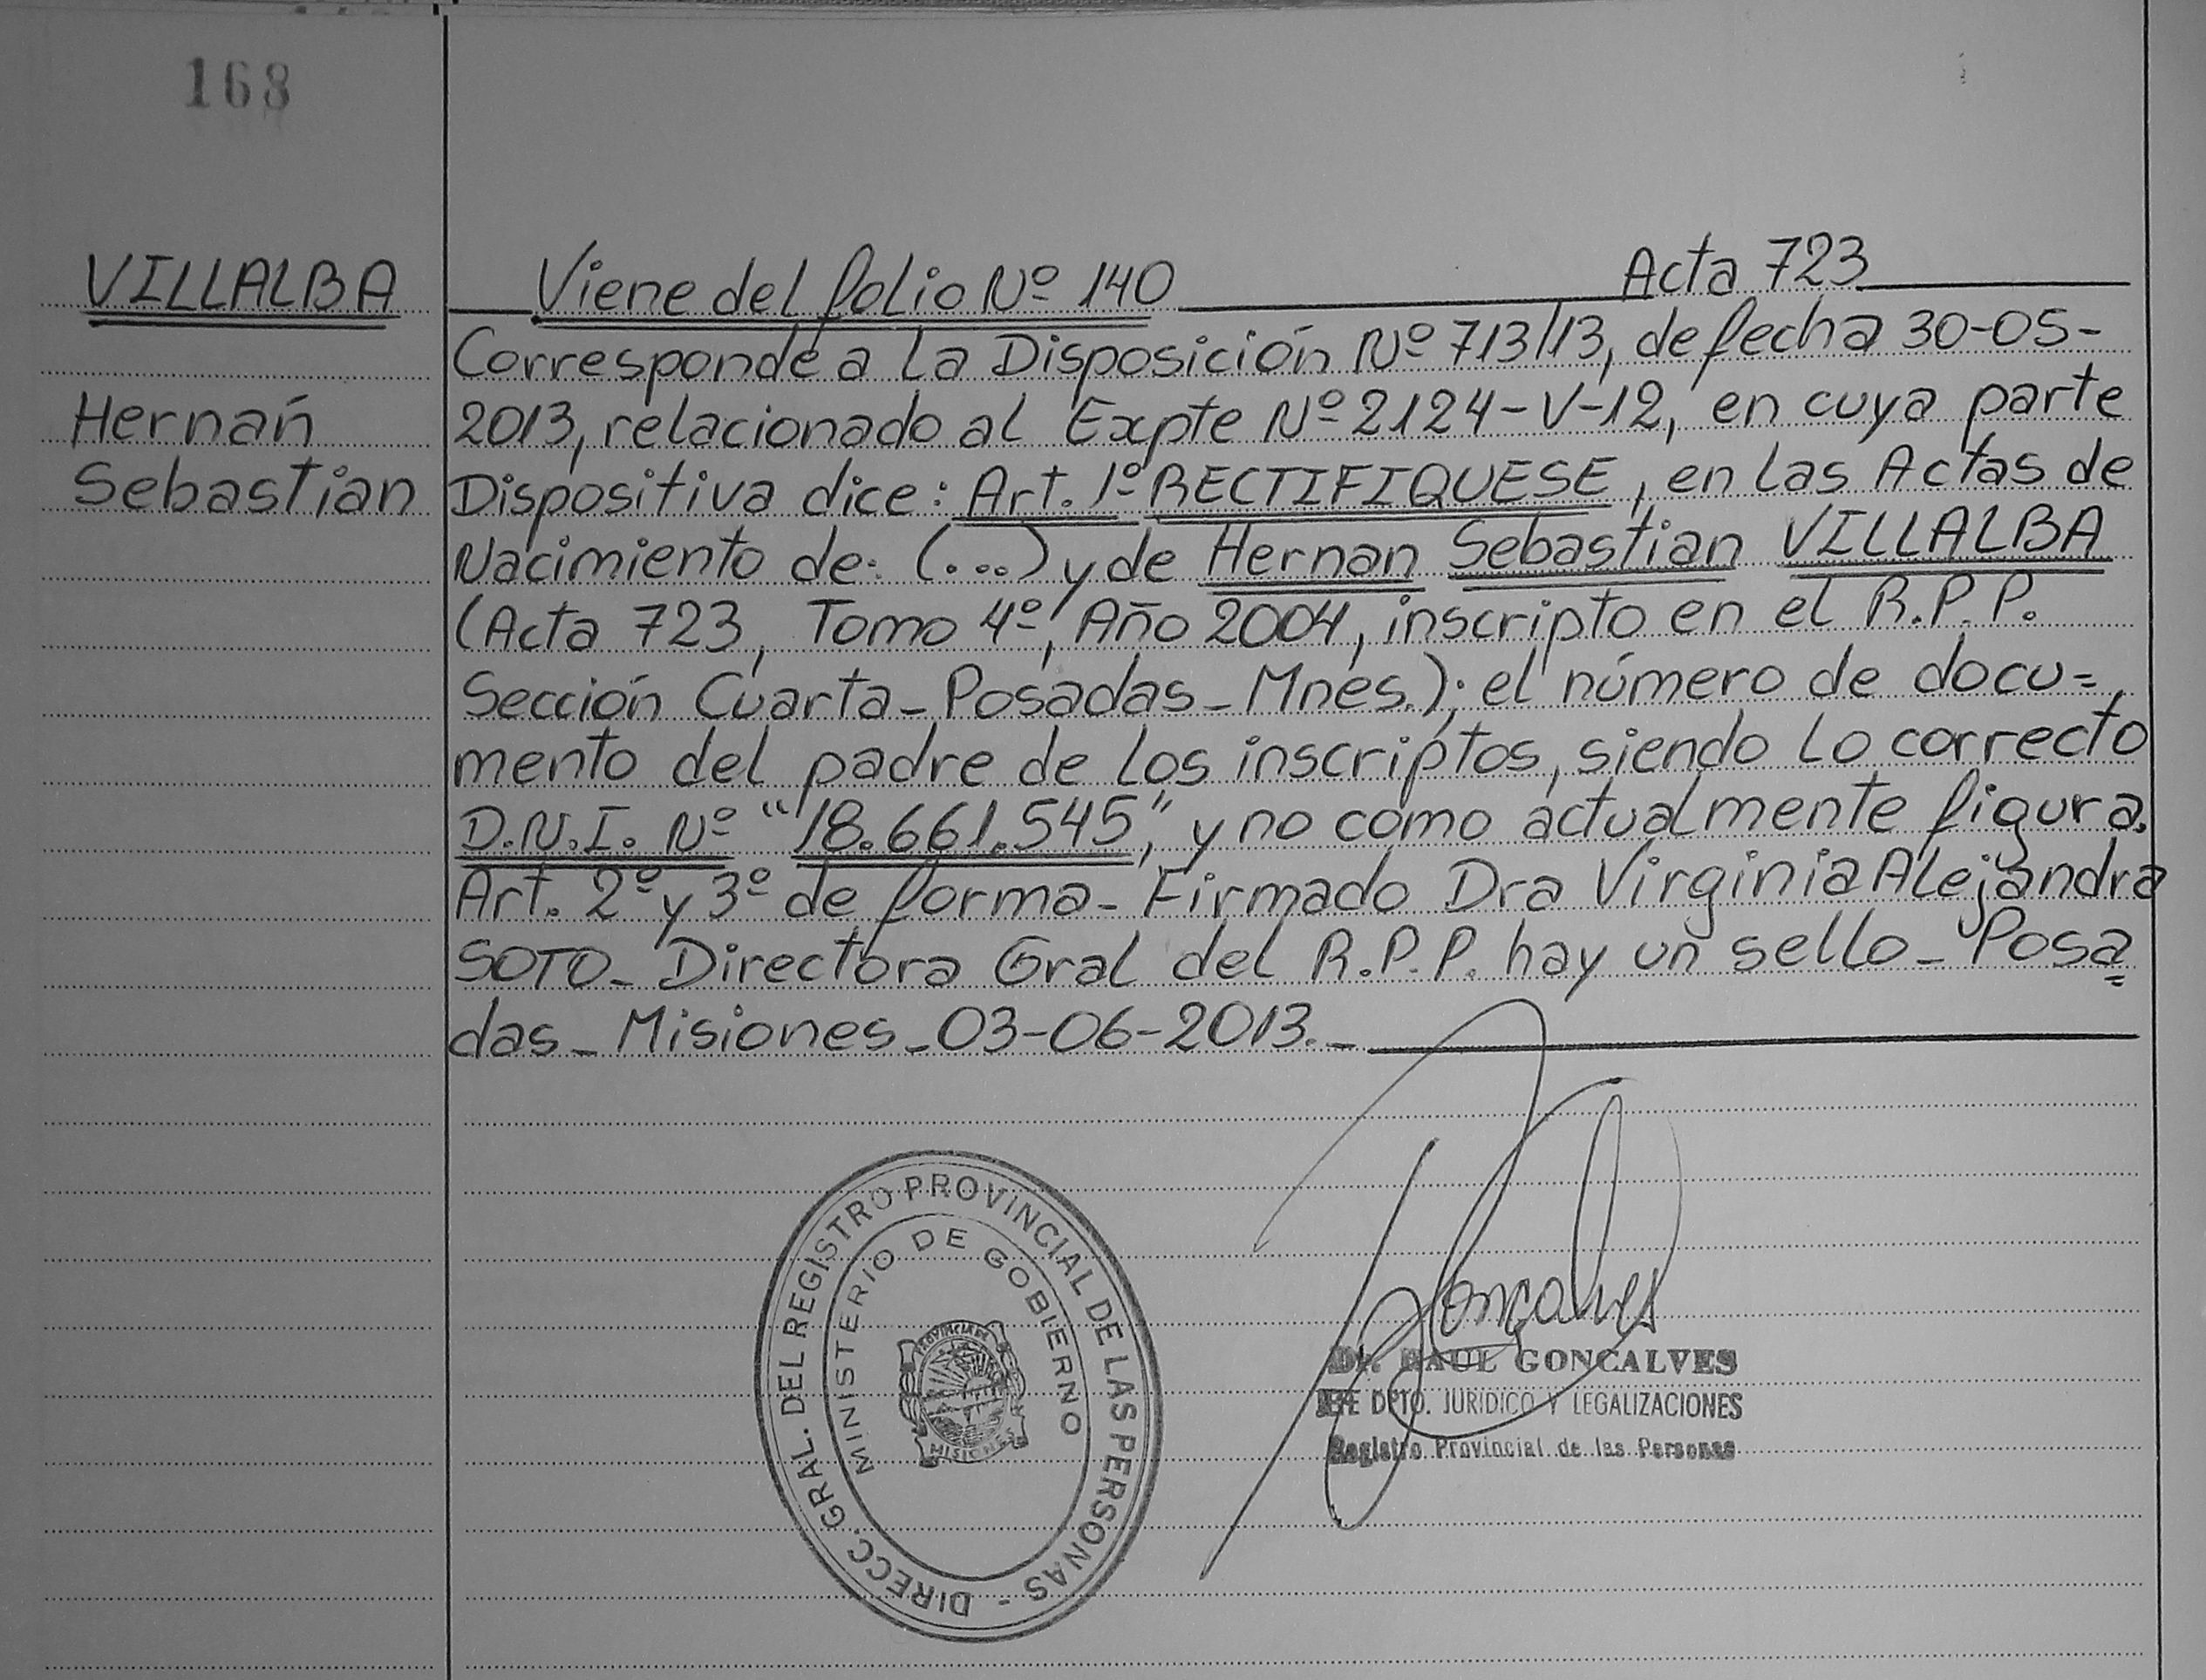 168
VILLALBA
Hernań
Sebastian
Viene del folio Nº 140 Acta 723
Corresponde a la Disposición Nº 713/13, de fecha 30-05-
2013, relacionado al Expte Nº 2124-V-12, en cuya parte
Dispositiva dice: Art. 1º RECTIFIQUESE, en las Actas de
Nacimiento de: (...) y de Hernan Sebastian VILLALBA
(Acta 723, Tomo 4º, Año 2004, inscripto en el R.P.P.
Sección Cuarta-Posadas-Mnes.); el número de docu=
mento del padre de los inscriptos, siendo lo correcto
D.N.I. Nº "18.661.545", y no como actualmente figura.
Art. 2º y 3º de forma-Firmado Dra Virginia Alejandra
SOTO-Directora Gral del R.P.P. hay un sello-Posa=
das-Misiones-03-06-2013.-
DIRECC. GRAL. DEL REGISTRO PROVINCIAL DE LAS PERSONAS -
MINISTERIO DE GOBIERNO
PROVINCIA DE
MISIONES
Gonçalves
Dr. RAUL GONCALVES
JEFE DPTO. JURIDICO Y LEGALIZACIONES
Registro Provincial de las Personas